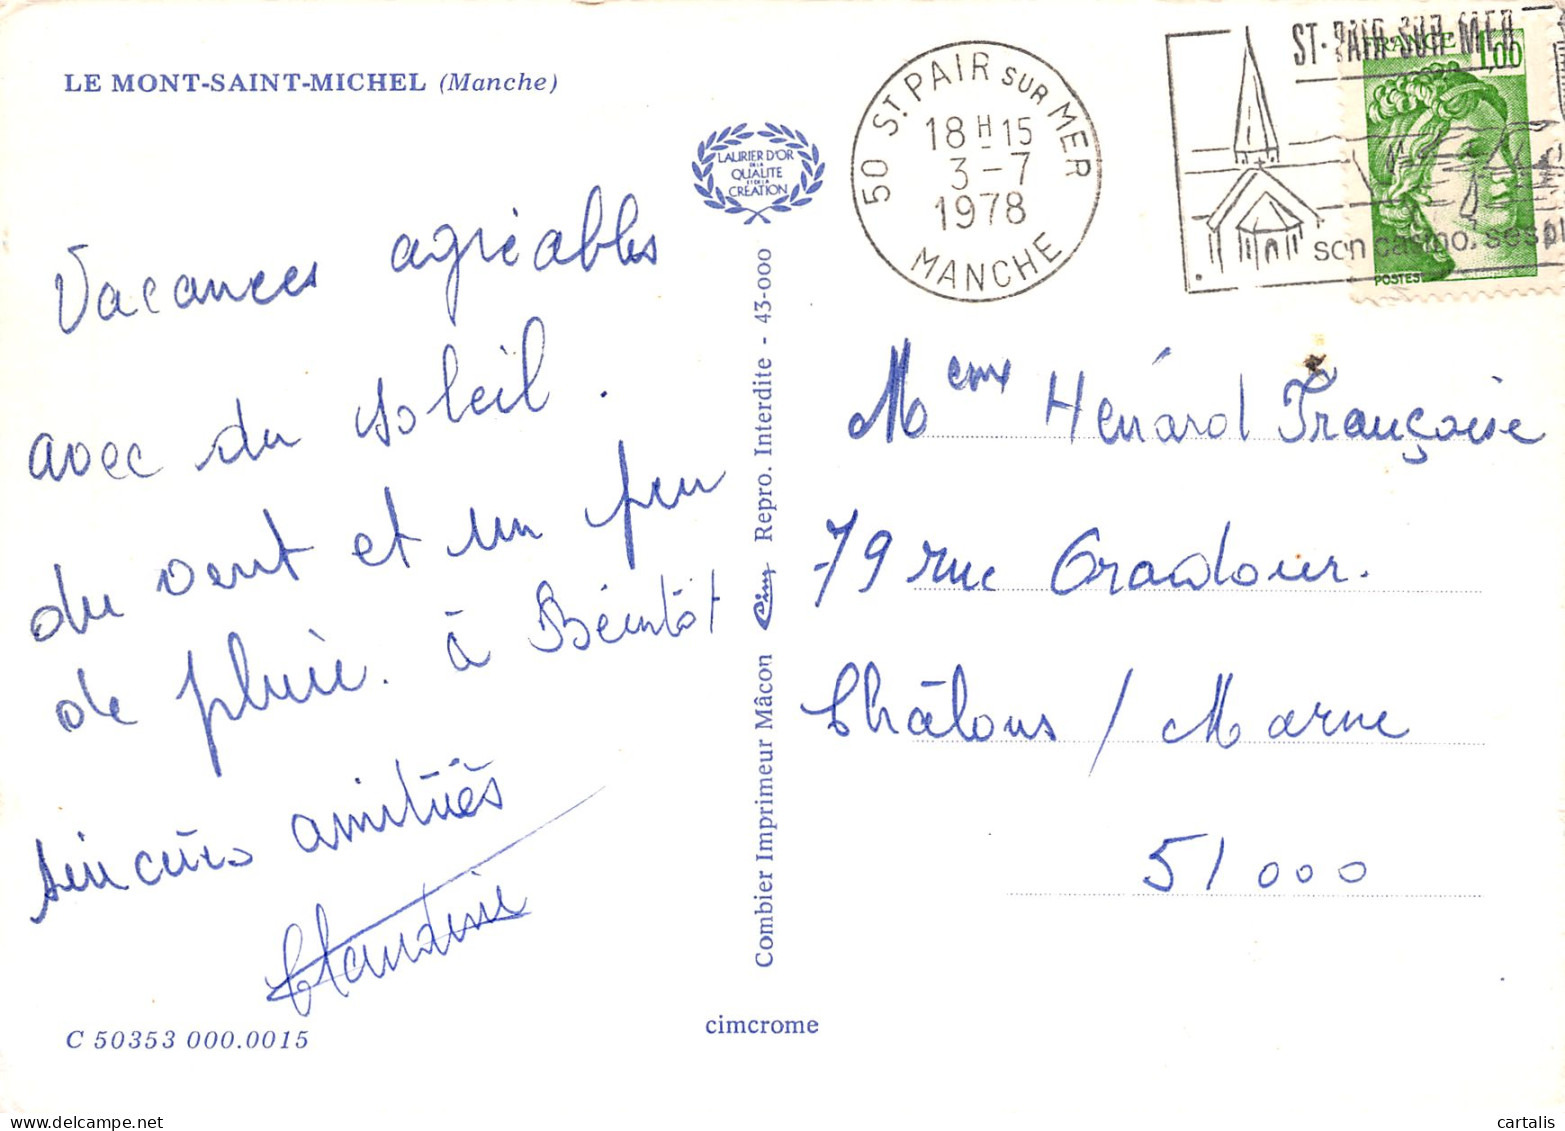 LE MONT-SAINT-MICHEL (Manche)
LAURIER D'OR
DE LA
QUALITE
ET DE LA
CREATION
50 ST PAIR SUR MER
18 H 15
3 - 7
1978
MANCHE
ST. PAIR SUR MER
FRANCE 1,00
son casino, ses pl
POSTES
Vacances agréables
avec du soleil.
du vent et un peu
de pluie. à Béintôt
sincères amitiés
Claudine
Meme Hénard Françoise
79 rue Oradour.
Châlons / Marne
51 000
Combier Imprimeur Mâcon Cim Repro. Interdite - 43-000
cimcrome
C 50353 000.0015
cartalis.com